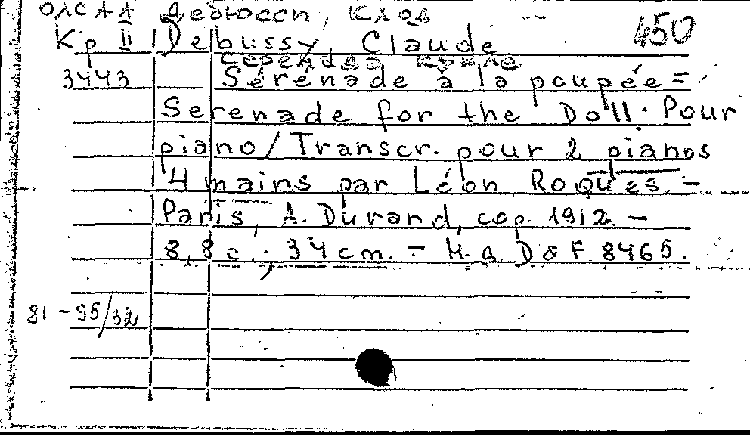 Дебюсси, Клод 450
Кр II Debussy, Claude
3443 Sérénade à la poupée =
Serenade for the Doll. Pour
piano/Transcr. pour 2 pianos
4 mains par Léon Roques. –
Paris, A. Durand, cop. 1912 –
8,8 c.; 34 cm. – Н. д. D & F. 8465.
81 – 95/32